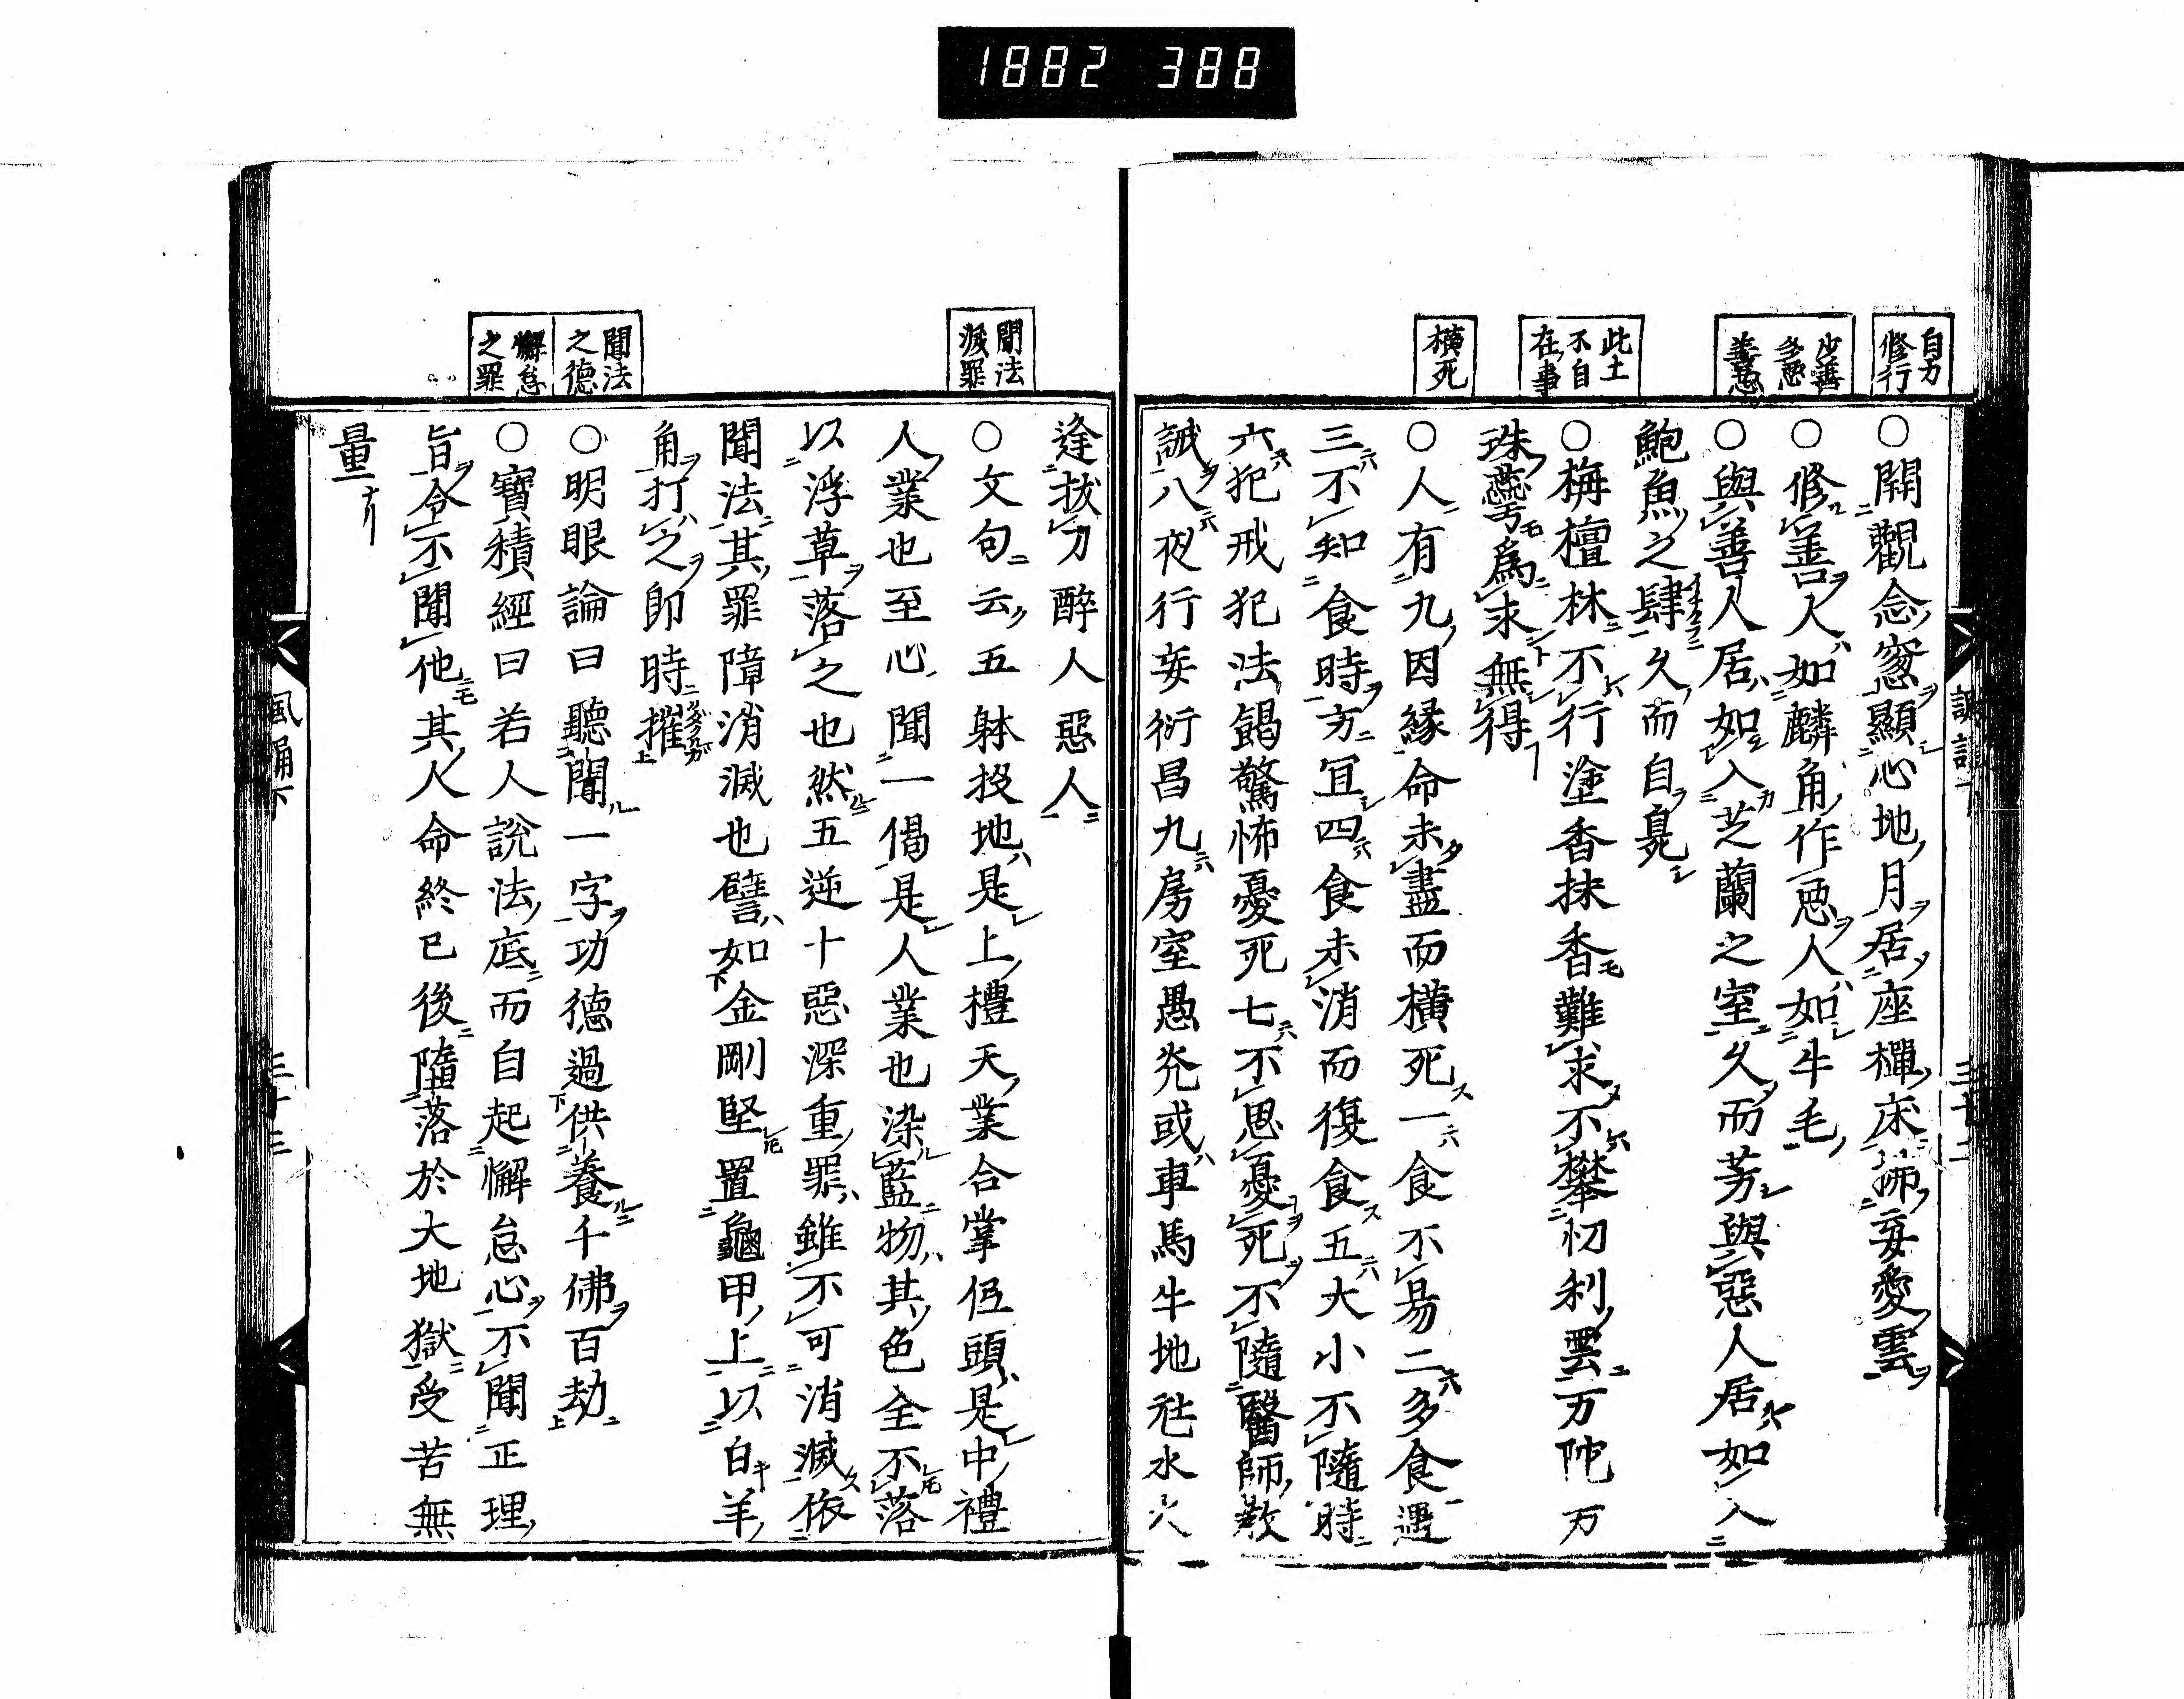 1882 388
自力
修行
少善
多惡
善惡
此土
不自
在事
橫死
○開觀念窓顯心地月居座禪床拂妄愛雲
○修善人如麟角作惡人如牛毛
○與善人居如入芝蘭之室久而芳與惡人居如入
鮑魚之肆久而自臭
○栴檀林不行塗香抹香難求不攀忉利雲万陀万
珠鬘爲求無得
○人有九因縁命未盡而橫死一食不易二多食過
三不知食時方冝四食未消而復食五大小不隨時
六犯戒犯法餲驚怖憂死七不思憂死不隨醫師教
誡八夜行妄衍昌九房室愚癡或車馬牛地社水火
逢拔刀醉人惡人
聞法
滅罪
○文句云五躰投地是上禮天業合掌低頭是中禮
人業也至心聞一偈是人業也染藍物其色全不落
以浮草落之也然五逆十惡深重罪雖不可消滅依
聞法其罪障消滅也譬如金剛堅置龜甲上以白羊
角打之卽時摧
聞法
之德
○明眼論曰聽聞一字功德過供養千佛百劫
懈怠
之罪
○寶積經曰若人說法底而自起懈怠心不聞正理
旨令不聞他其人命終已後墮落於大地獄受苦無
量
風誦下
三十三